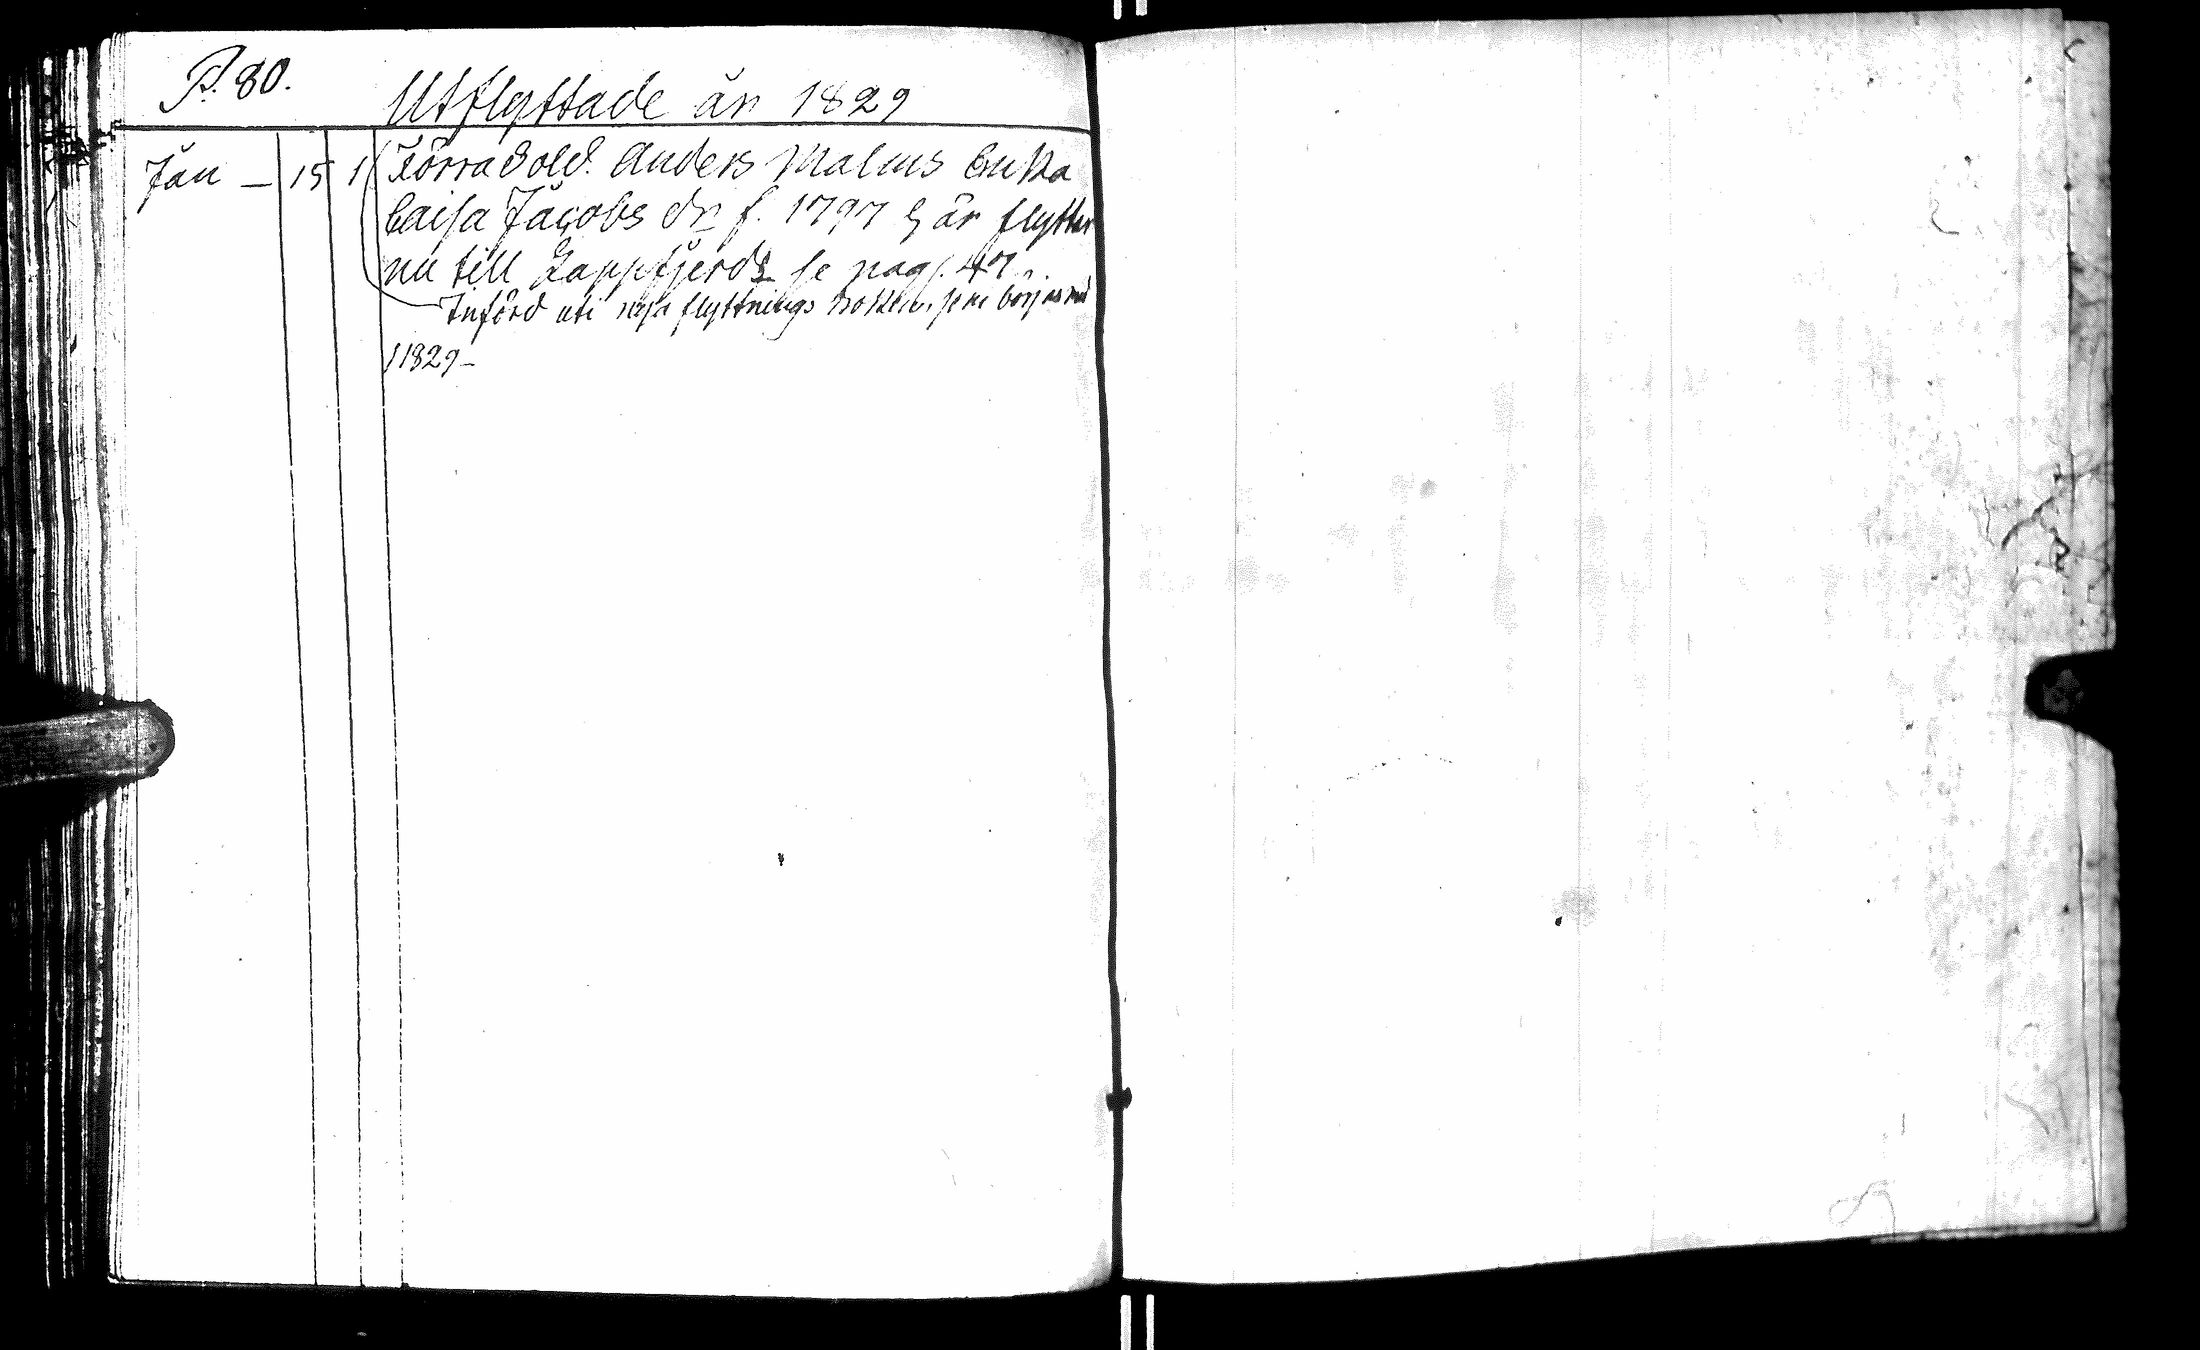 P. 80.
Utflyttade år 1829
Jan — 15 1 Förra Sold. Anders Malms Enka
Caisa Jacobs dr f. 1797 är flyttar
nu till Lappfjerds se pag. 47.
Införd uti nya flyttnings boken, som börjas med
1829 –